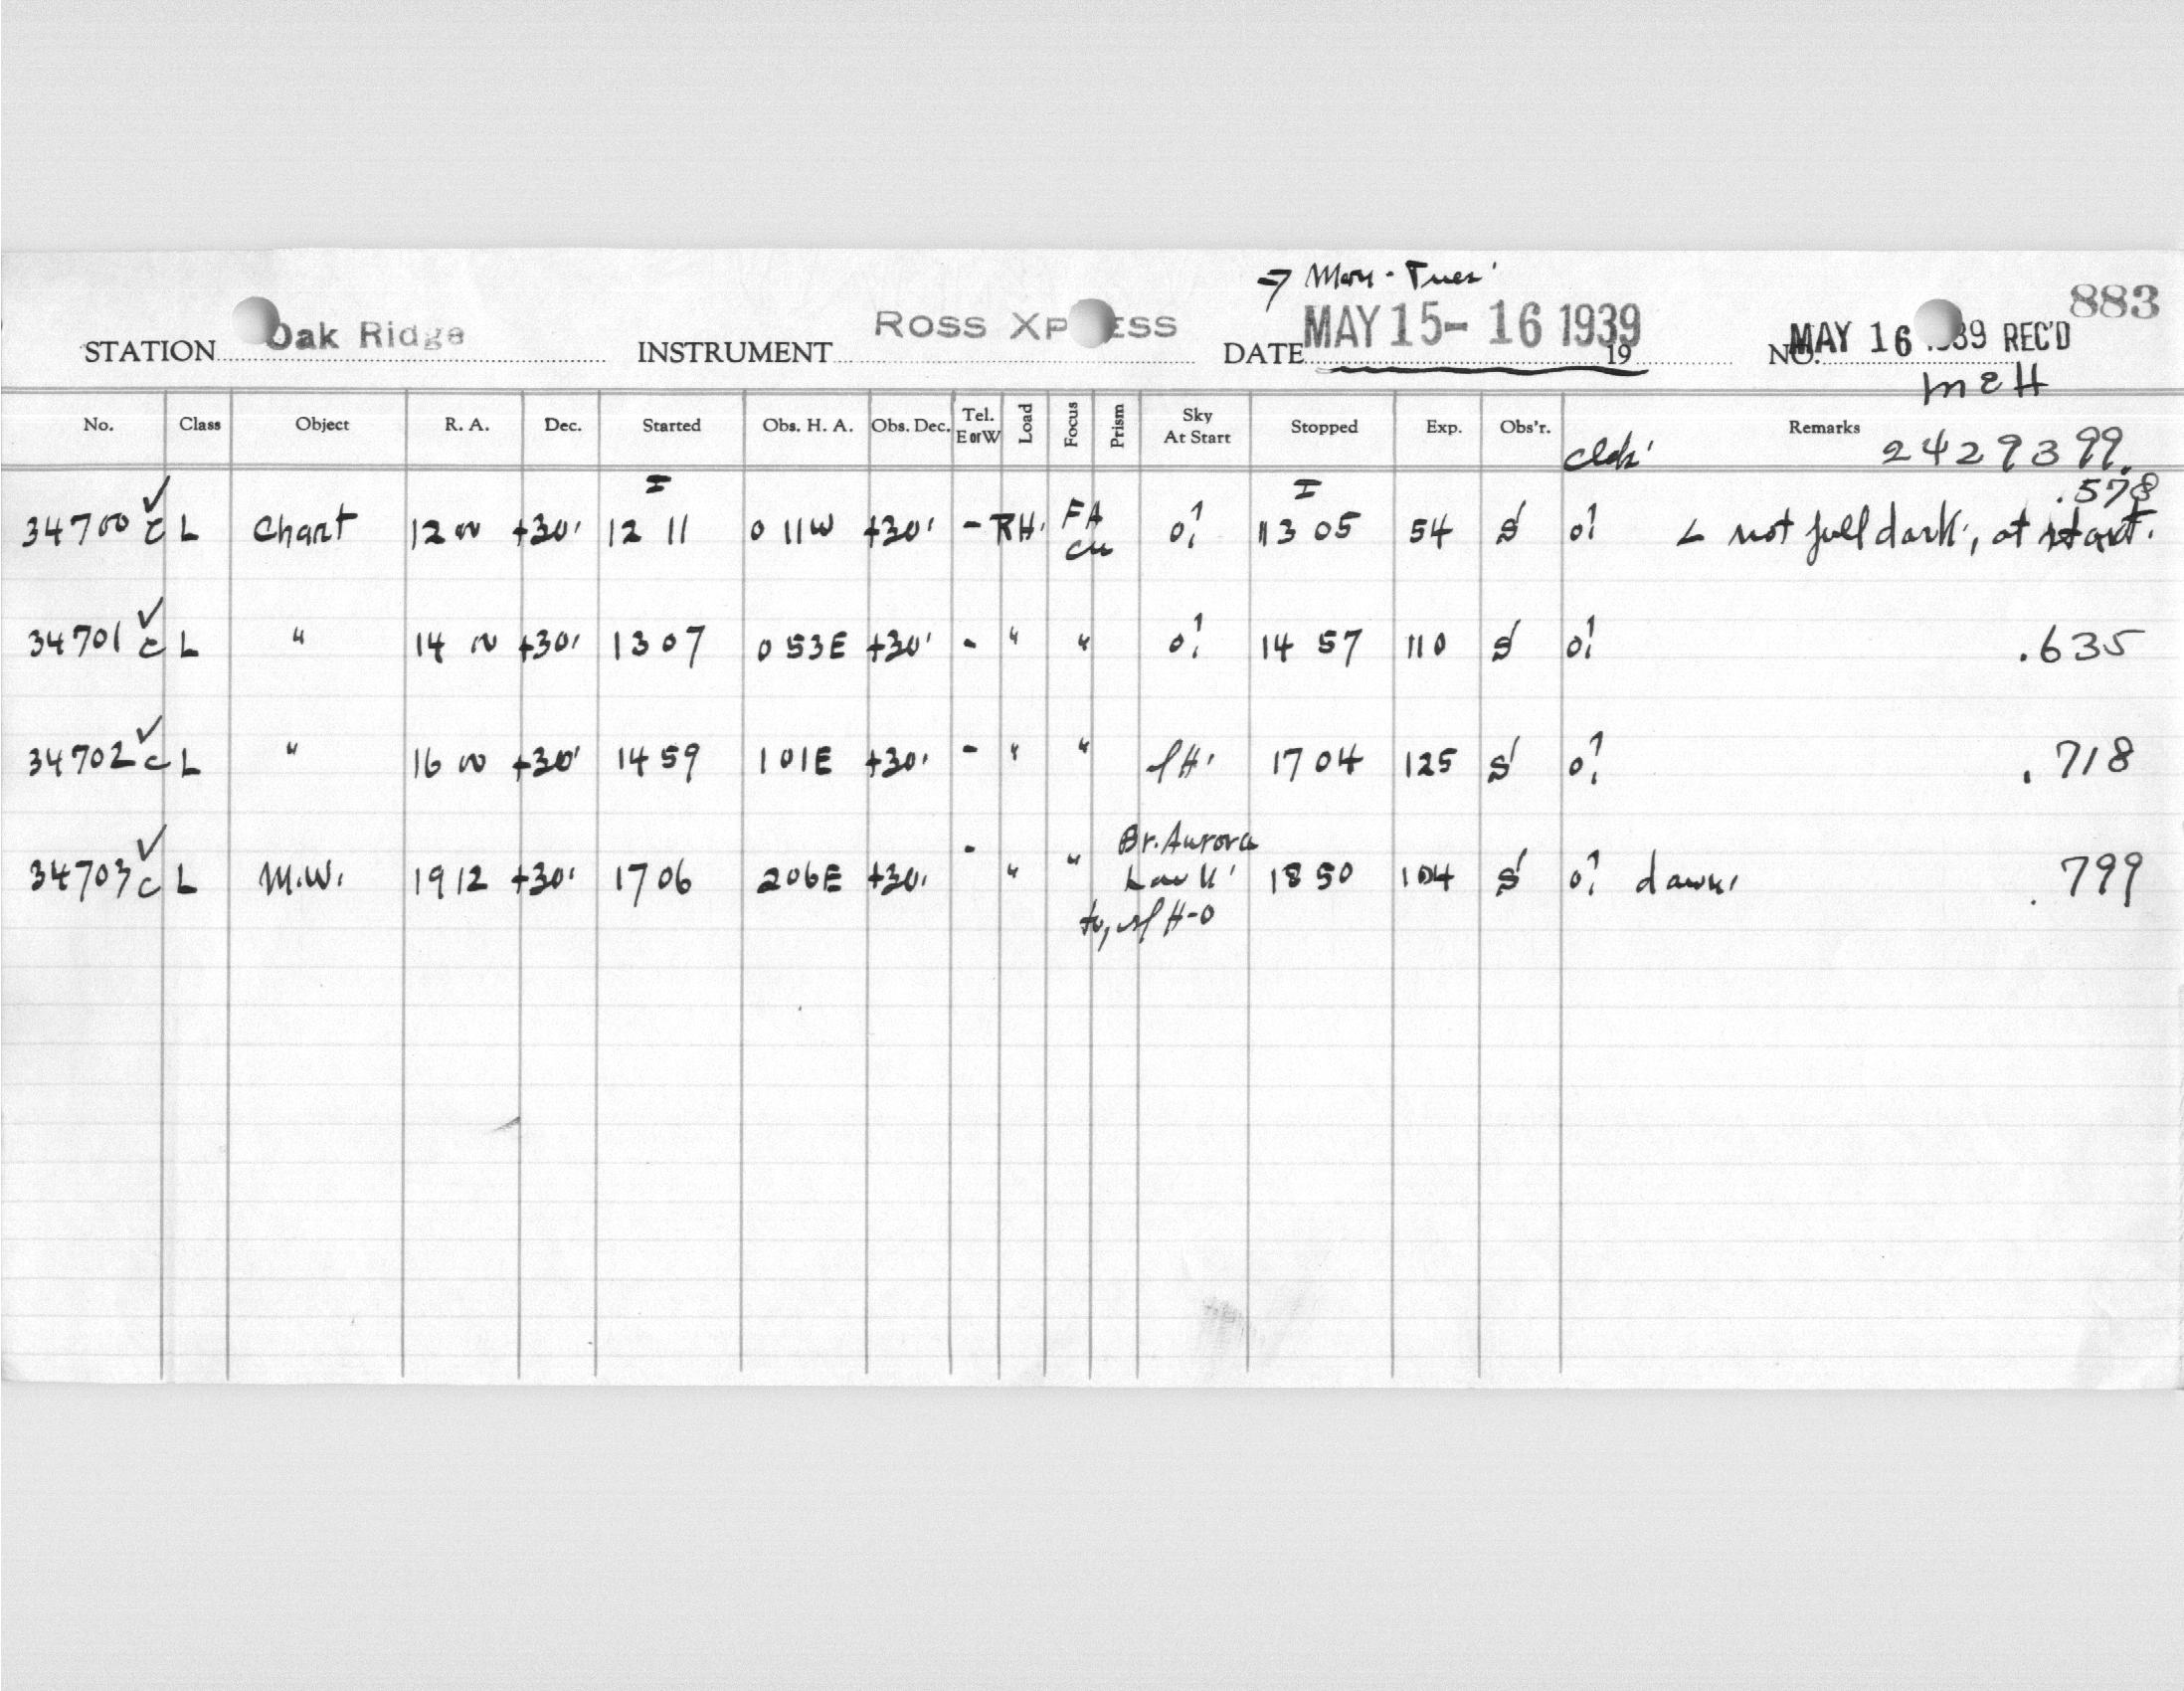 ⇒ Mon - Tues'
883
STATION Oak Ridge INSTRUMENT ROSS XPRESS DATE MAY 15- 16 1939 19 NO. MAY 16 1939 REC'D
M E H
No. Class Object R. A. Dec. Started Obs. H. A. Obs. Dec. Tel. E or W Load Focus Prism Sky At Start Stopped Exp. Obs'r. Remarks
2429399.
.578
34700 c L Chart 12 00 +30' 12 11 0 11W +30' - RH' FA 0? 13 05 54 S 0? < not full dark', at start.
34701 c L " 14 00 +30' 13 07 0 53E +30' - " " 0? 14 57 110 S 0? .635
34702 c L " 16 00 +30' 14 59 1 01E +30' - " " 17 04 125 S 0? .718
Br. Aurora
34703 c L M.W. 19 12 +30' 17 06 2 06E +30' - " " 18 50 104 S 0? dawn' .799